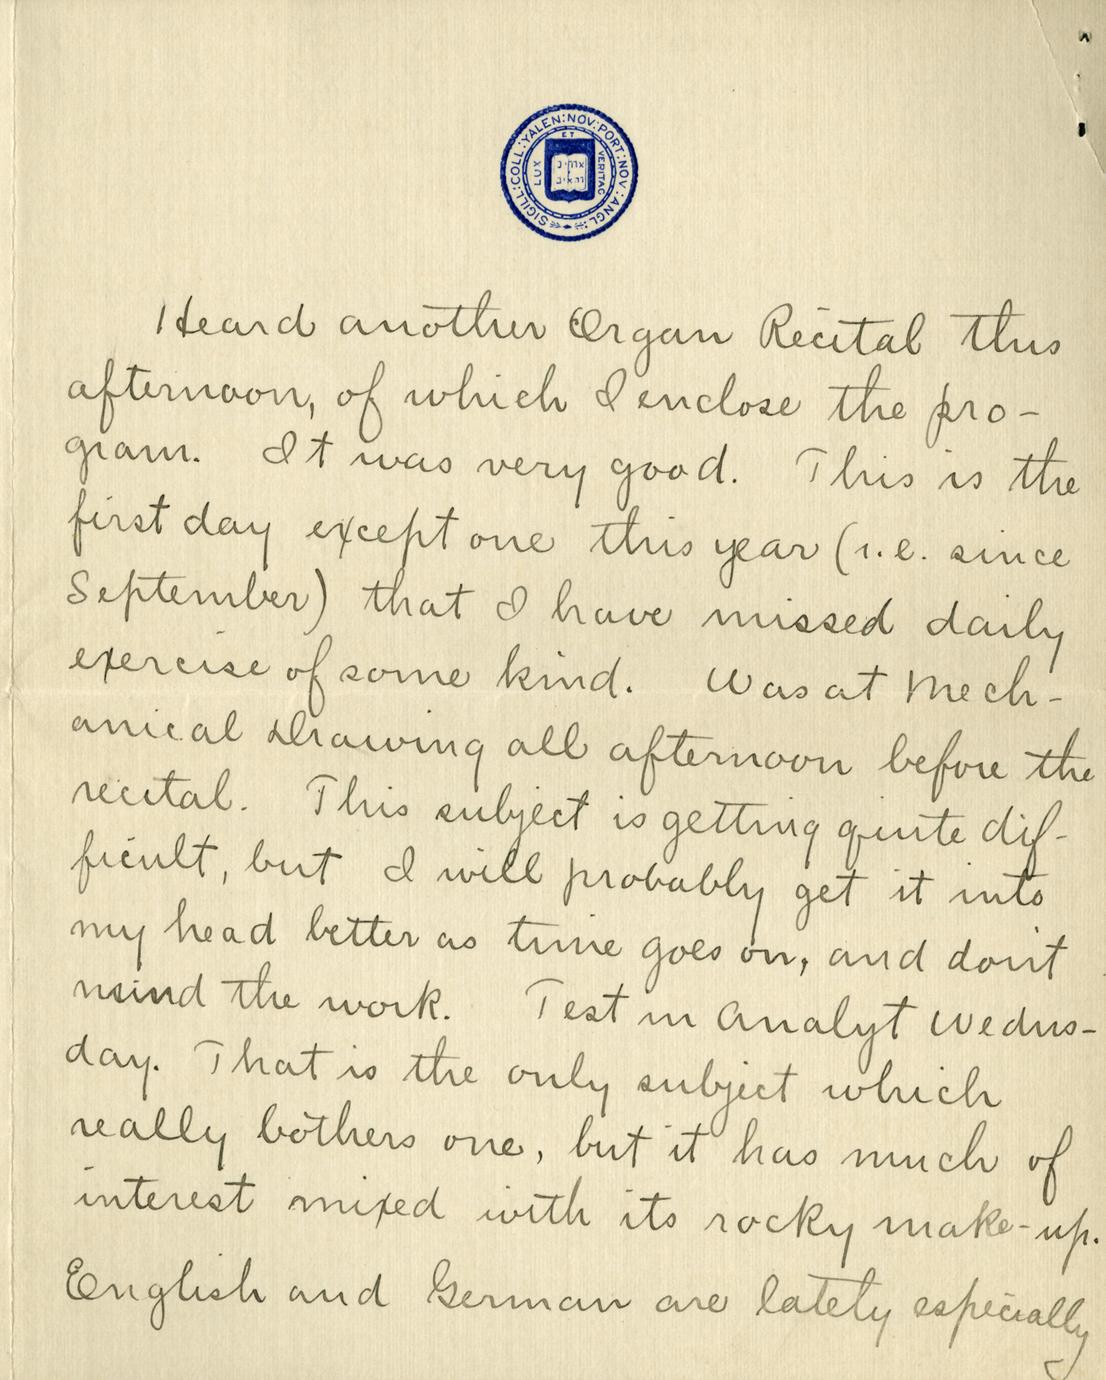 SIGILL:COLL:YALEN:NOV:PORT:NOV:ANGL:
LUX ET VERITAS
Heard another Organ Recital this
afternoon, of which I enclose the pro-
gram. It was very good. This is the
first day except one this year (i.e. since
September) that I have missed daily
exercise of some kind. Was at Mech-
anical Drawing all afternoon before the
recital. This subject is getting quite dif-
ficult, but I will probably get it into
my head better as time goes on, and don't
mind the work. Test in Analyt Wednes-
day. That is the only subject which
really bothers one, but it has much of
interest mixed with its rocky make-up.
English and German are lately especially